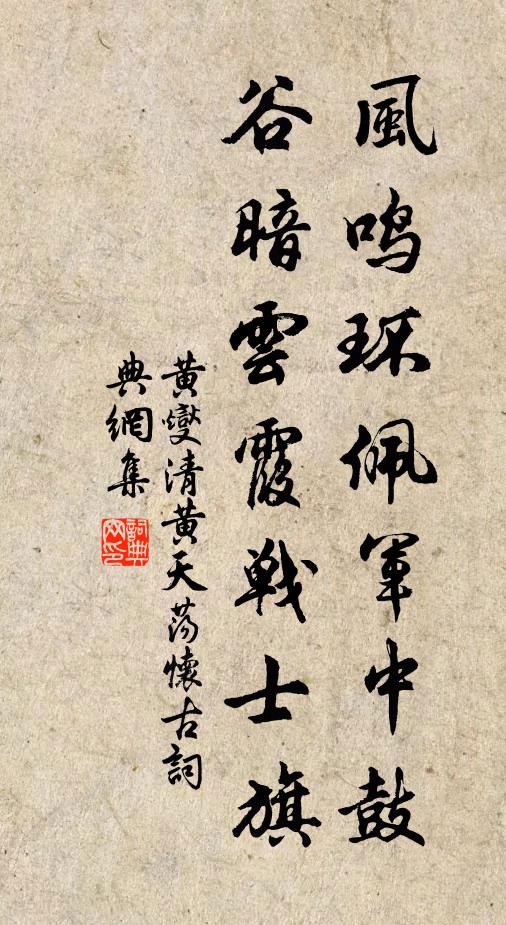 風鳴環佩軍中鼓
谷暗雲霞戰士旗
黃燮清黃天蕩懷古詞
典網集
詞典网印